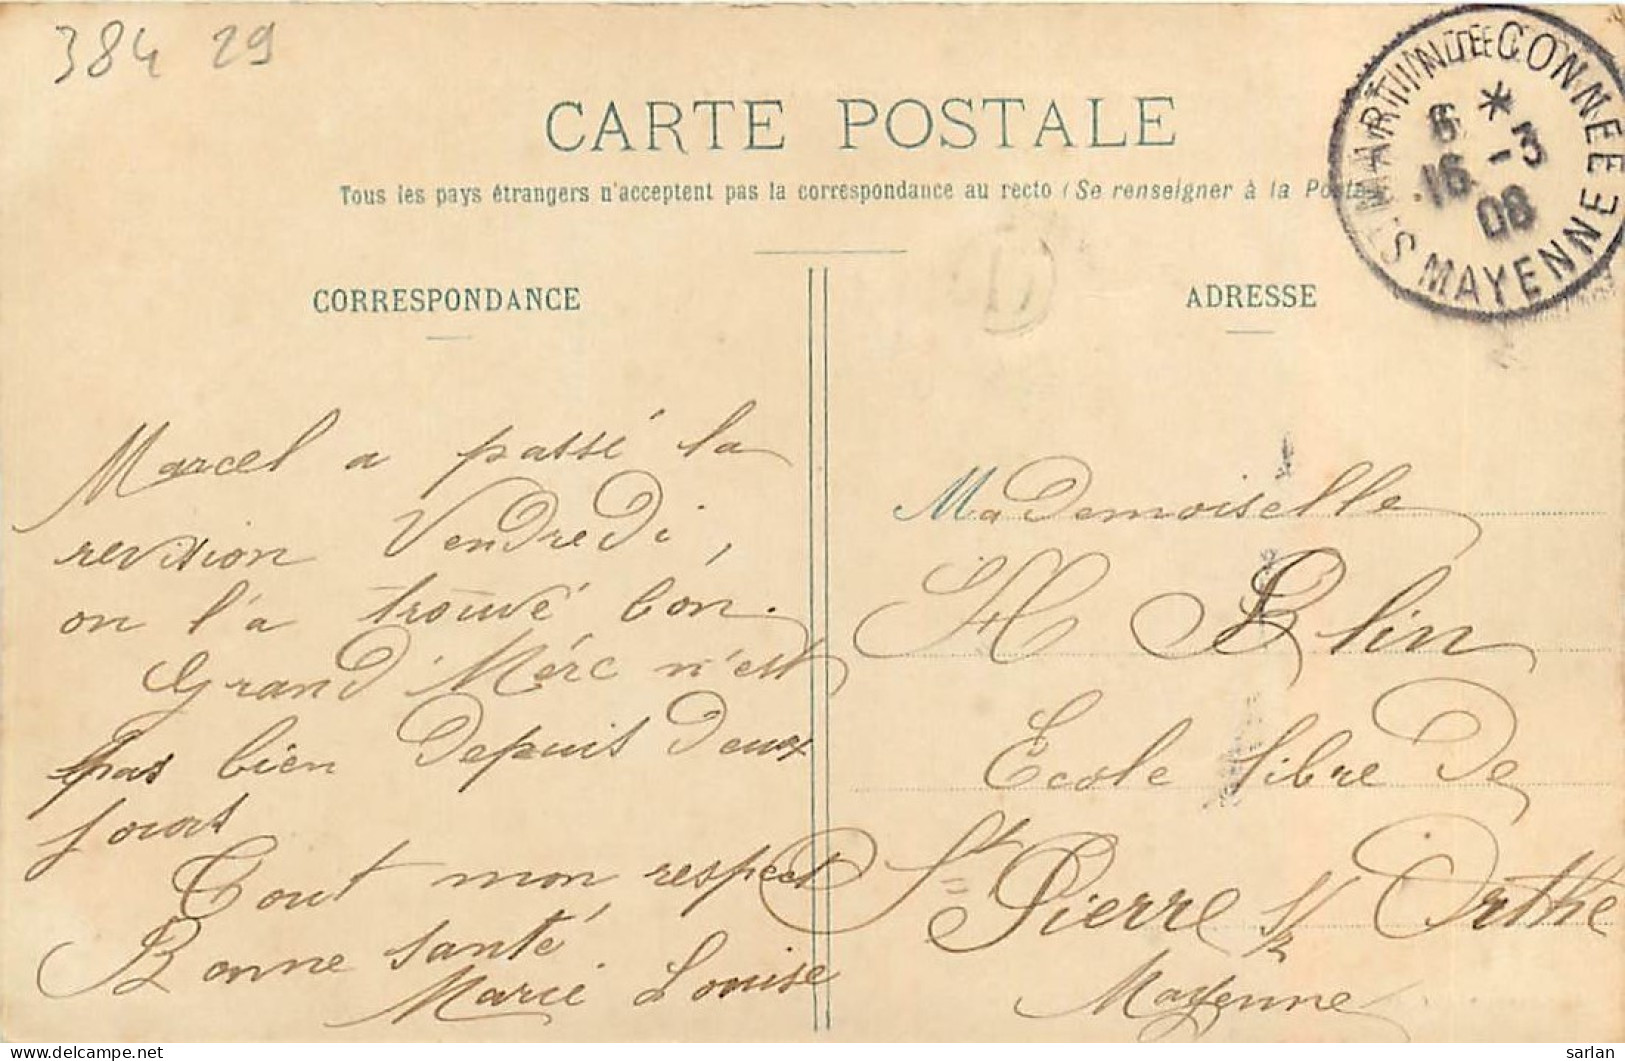 384 29
CARTE POSTALE
Tous les pays étrangers n'acceptent pas la correspondance au recto (Se renseigner à la Poste
CORRESPONDANCE
Marcel a passé la
revision Vendredi,
on l'a trouvé bon.
Grand'Mère n'est
pas bien depuis deux
jours
Tout mon respect
Bonne santé
Marie Louise
ADRESSE
Mademoiselle
H Blin
Ecole libre de
St Pierre s/ Orthe
Mayenne
St MARTIN DE CONNÉE
MAYENNE
6 *
16 - 3
08
D
sarlan